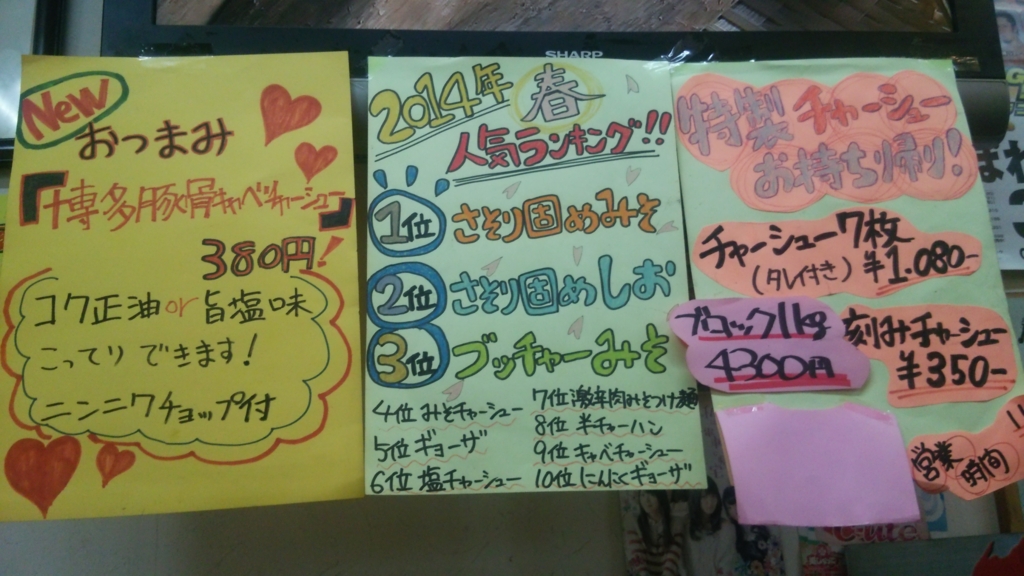 SHARP
New
おつまみ
『博多豚骨キャベツチャーシュー』
380円!
コク正油or旨塩味
こってりできます!
ニンニクチョップ付
2014年 春
人気ランキング!!
1位 さそり固めみそ
2位 さそり固めしお
3位 ブッチャーみそ
4位 みそチャーシュー
5位 ギョーザ
6位 塩チャーシュー
7位 激辛肉みそつけ麺
8位 半チャーハン
9位 キャベチャーシュー
10位 にんにくギョーザ
特製チャーシュー
お持ち帰り!
チャーシュー7枚
(タレ付き) ¥1.080-
ブロック1kg
4300円
刻みチャーシュー
¥350-
営業
時間